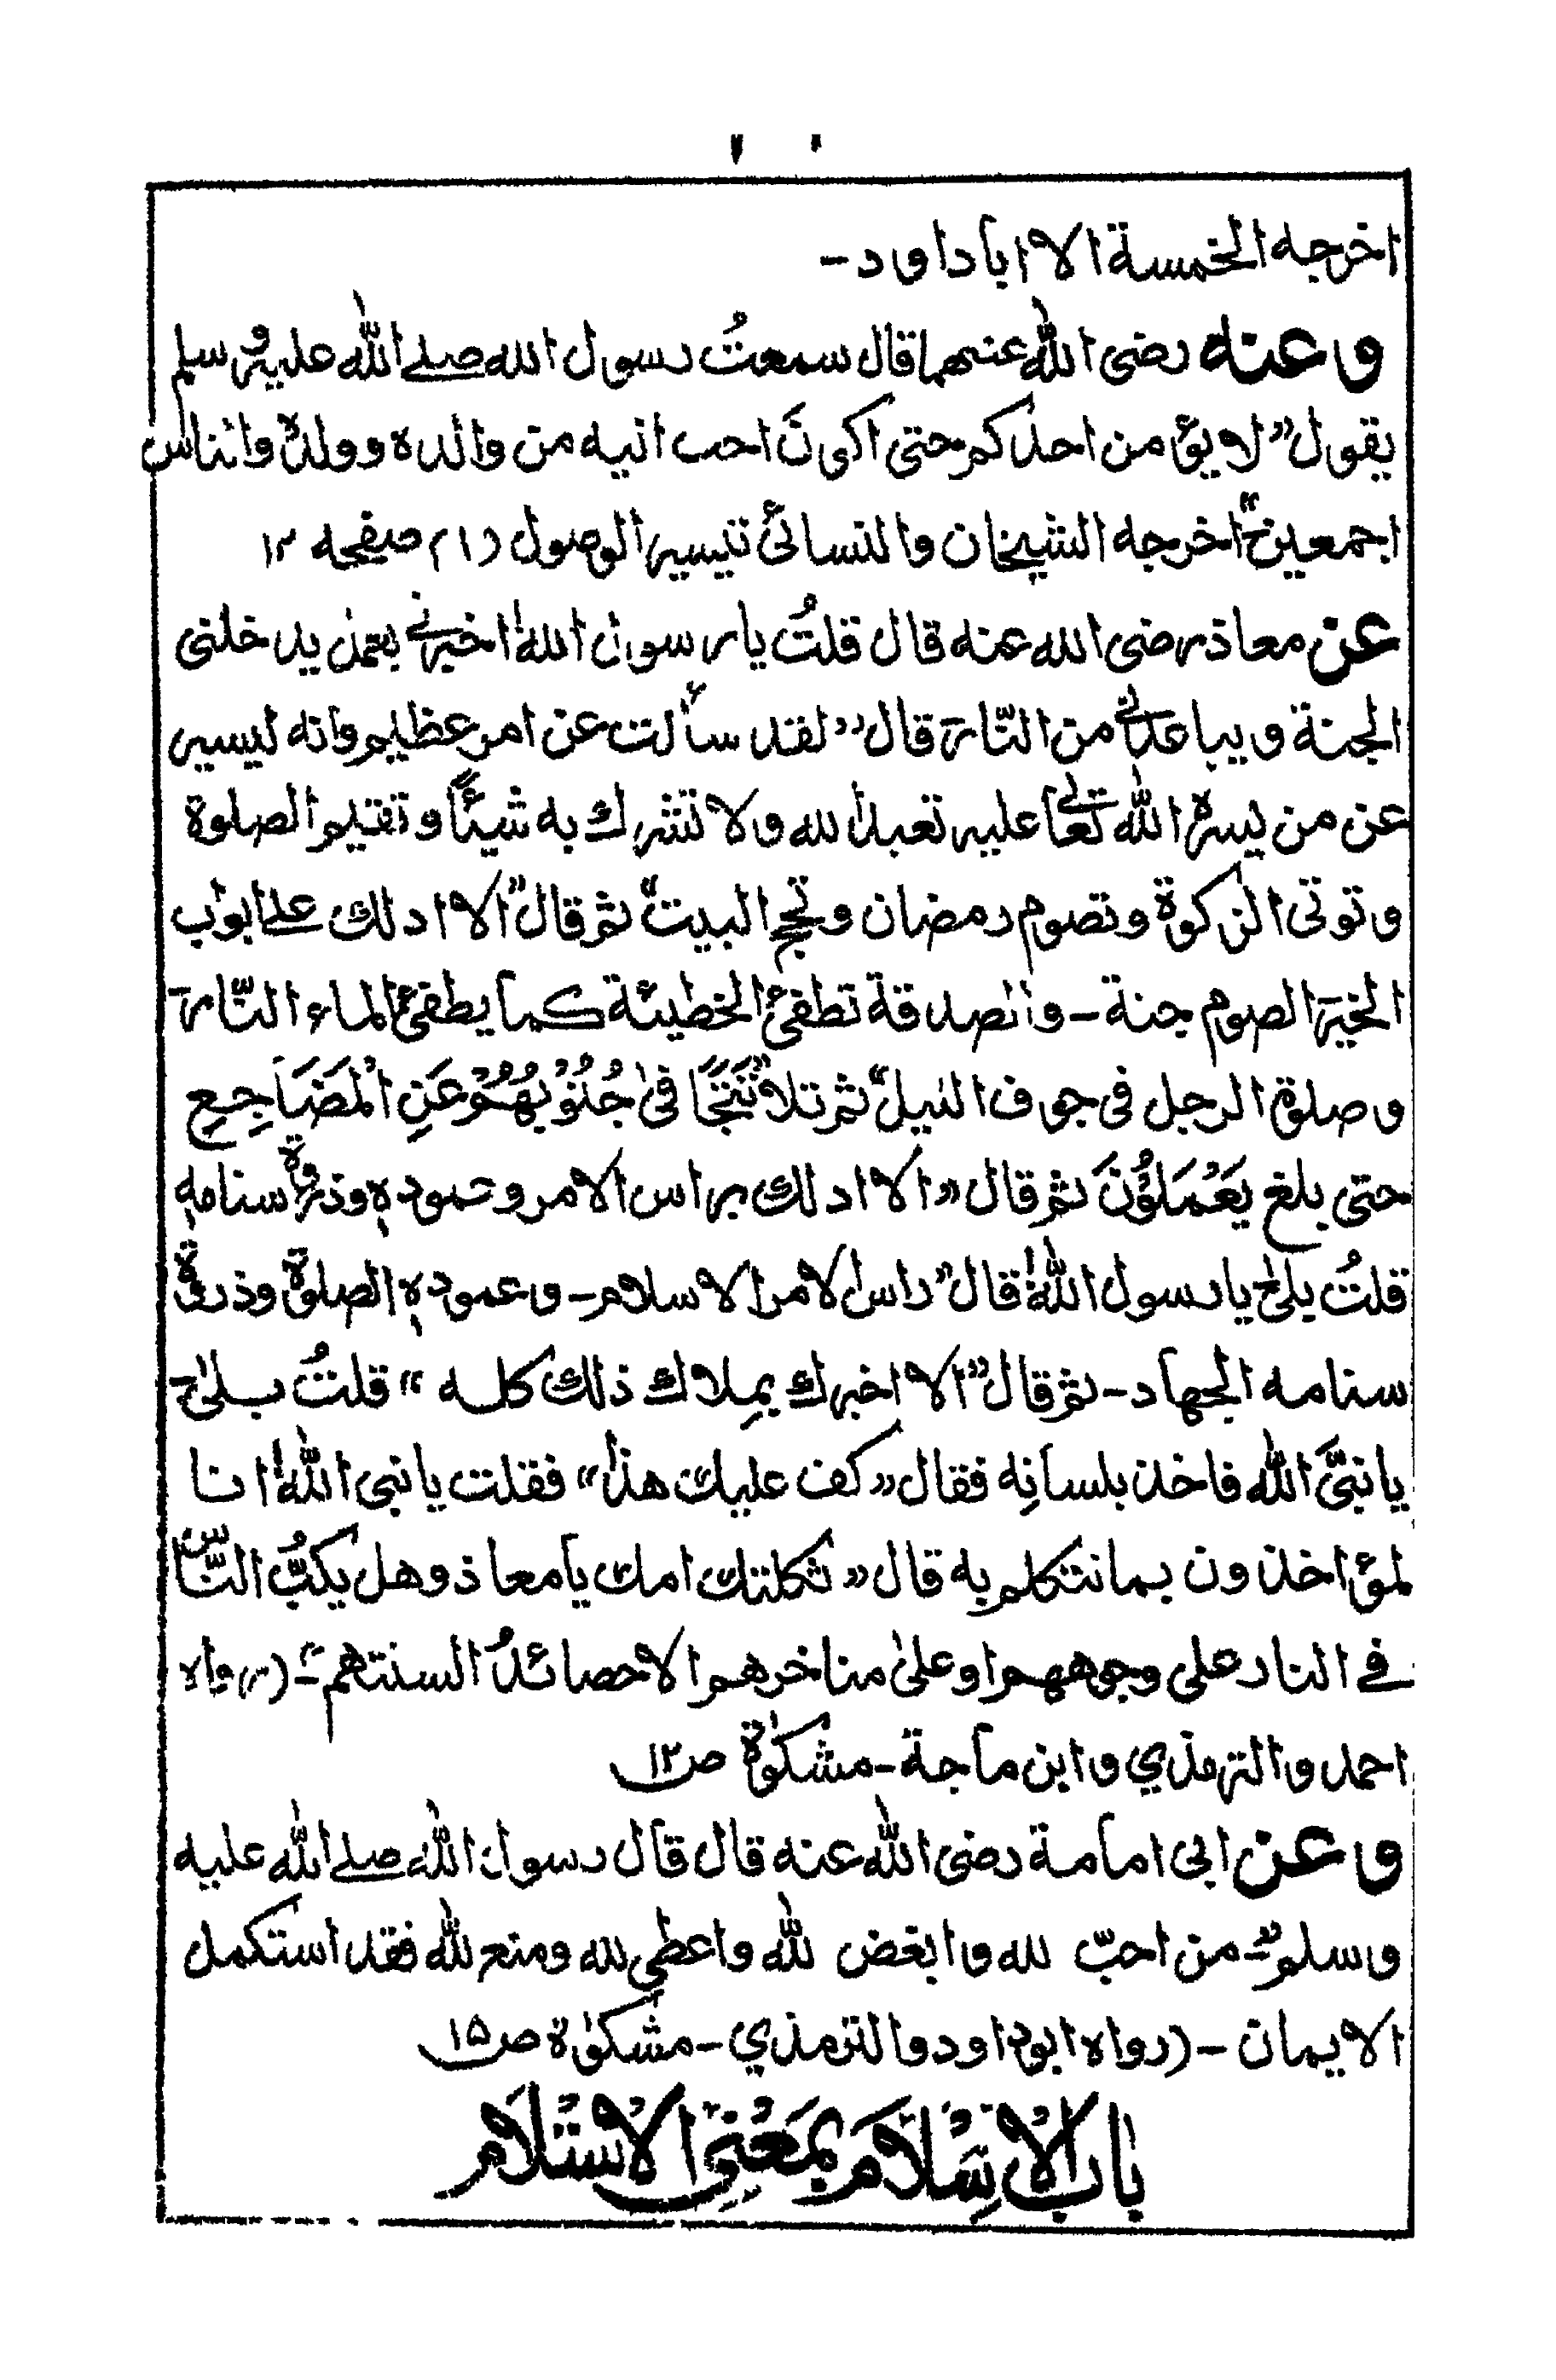 اخرجه الخمسة الا اباداود -
وعنه رضى الله عنهما قال سمعتُ رسول الله صلے الله عليه وسلم
يقول ”لا يؤمن احدكم حتى اكونَ احب اليه من والده وولده والناس
اجمعين“ اخرجه الشيخان والنسائى تيسير الوصول (١) صفحه ١٣
عن معاذ رضى الله عنه قال قلتُ يا رسول الله اخبرنے بعمل يدخلنى
الجنة ويباعدنى من النّار قال ”لقد سألت عن امر عظيم وانه ليسير
عن من يسره الله تعالى عليه تعبد الله ولا تشرك به شيئًا وتقيم الصلوة
وتوتى الزكوة وتصوم رمضان وتحج البيت“ ثم قال ”الا ادلك علے ابواب
الخير الصوم جنة - والصدقة تطفئ الخطيئة كما يطفئ الماء النّار
وصلوة الرجل فى جوف الليل“ ثم تلا ”تَتَجَافىٰ جُنُوْبُهُمْ عَنِ الْمَضَاجِعِ
حتى بلغ يَعْمَلُوْنَ ثم قال ”الا ادلك براس الامر وعموده وذروة سنامه
قلتُ بلىٰ يا رسول الله قال ”راس الامر الاسلام - وعموده الصلوة وذروة
سنامه الجهاد - ثم قال ”الا اخبرك بمِلاك ذلك كله“ قلتُ بلىٰ
يا نبىَّ الله فاخذ بلسانِه فقال ”كف عليك هذا“ فقلت يا نبى الله انا
لمؤاخذون بما نتكلم به قال ”ثكلتك امك يا معاذ وهل يكبُّ النّاس
فے النار على وجوههم او علىٰ مناخرهم الا حصائدُ السنتهم“ - (رواه
احمد والترمذي وابن ماجة - مشكوٰة ص١٢
وعن ابى امامة رضى الله عنه قال قال رسول الله صلے الله عليه
وسلم ”- من احبّ لله وابغض لله واعطى لله ومنع لله فقد استكمل
الايمان - (رواه ابوداود والترمذي - مشكوٰة ص١٥
بَابُ الْاِسْلَامِ بِمَعْنِى الْاِسْتِسْلَام